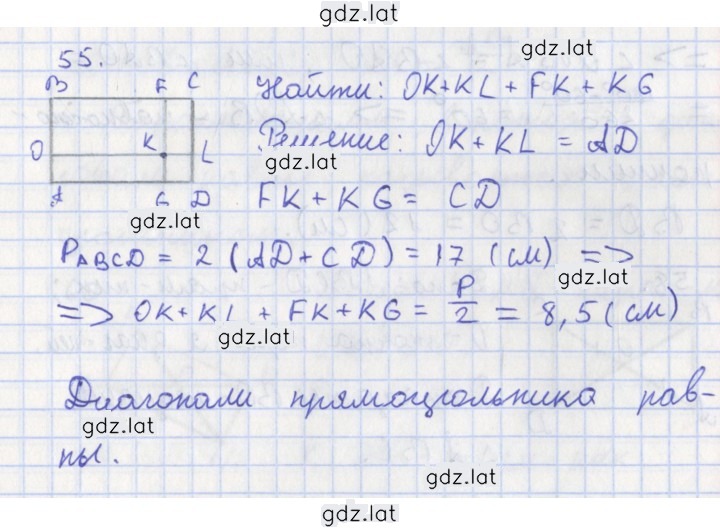 gdz.lat
55.
gdz.lat
B F C
Найти: OK+KL+FK+KG
O K L
Решение: OK+KL = AD
gdz.lat
A G D
FK+KG = CD
gdz.lat
P_ABCD = 2 (AD+CD) = 17 (см) =>
gdz.lat
=> OK+KL + FK+KG = P/2 = 8,5 (см)
gdz.lat
Диагонали прямоугольника рав-
gdz.lat
ны.
gdz.lat
gdz.lat